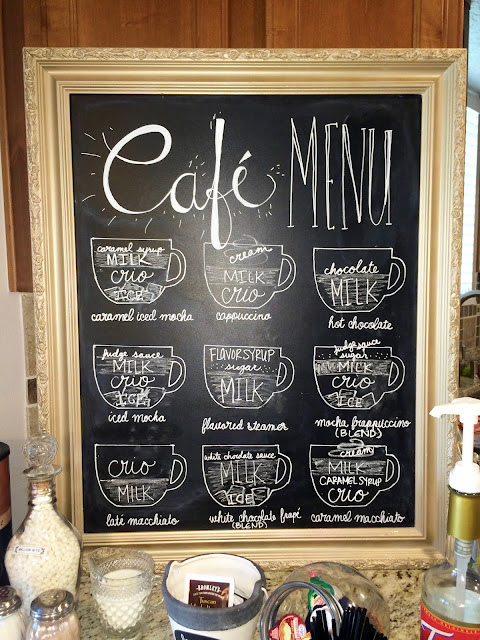 Café MENU
caramel syrup
MILK
crio
ICE
caramel iced mocha
cream
MILK
crio
cappuccino
chocolate
MILK
hot chocolate
fudge sauce
MILK
crio
ICE
iced mocha
FLAVOR SYRUP
sugar
MILK
flavored steamer
fudge sauce
sugar
MILK
crio
ICE
mocha frappuccino
(BLEND)
crio
MILK
laté macchiato
white chocolate sauce
MILK
ICE
white chocolate frapé
(BLEND)
cream
MILK
CARAMEL SYRUP
crio
caramel macchiato